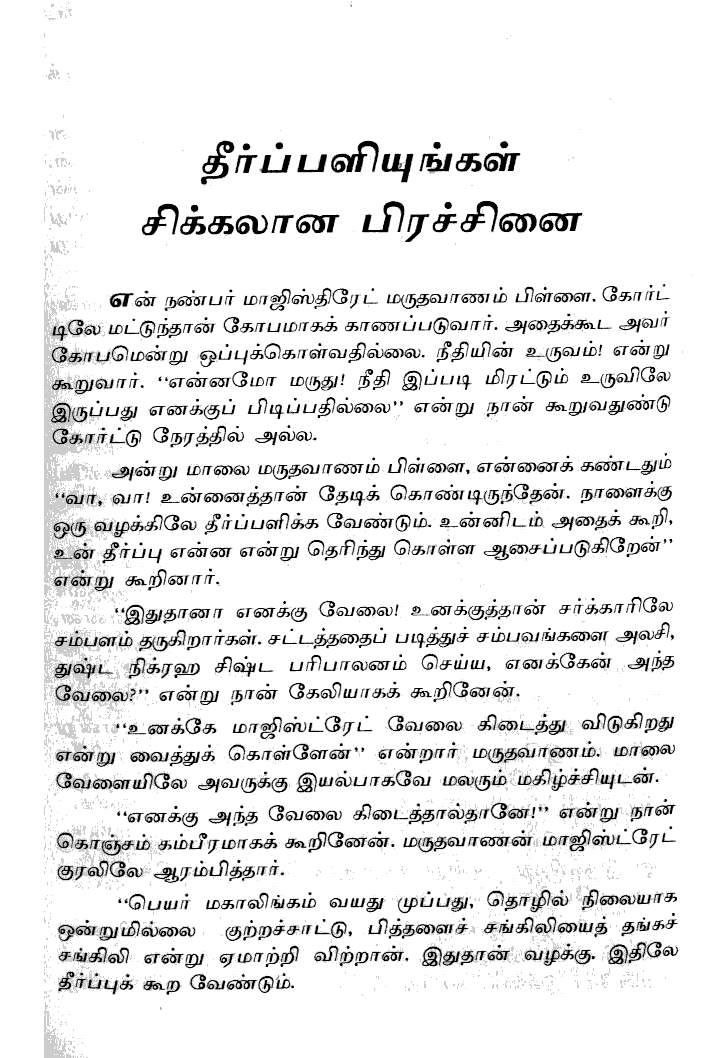 தீர்ப்பளியுங்கள்
சிக்கலான பிரச்சினை
என் நண்பர் மாஜிஸ்திரேட் மருதவாணம் பிள்ளை. கோர்ட்
டிலே மட்டுந்தான் கோபமாகக் காணப்படுவார். அதைக்கூட அவர்
கோபமென்று ஒப்புக்கொள்வதில்லை. நீதியின் உருவம்! என்று
கூறுவார். “என்னமோ மருது! நீதி இப்படி மிரட்டும் உருவிலே
இருப்பது எனக்குப் பிடிப்பதில்லை” என்று நான் கூறுவதுண்டு
கோர்ட்டு நேரத்தில் அல்ல.
அன்று மாலை மருதவாணம் பிள்ளை, என்னைக் கண்டதும்
“வா, வா! உன்னைத்தான் தேடிக் கொண்டிருந்தேன். நாளைக்கு
ஒரு வழக்கிலே தீர்ப்பளிக்க வேண்டும். உன்னிடம் அதைக் கூறி,
உன் தீர்ப்பு என்ன என்று தெரிந்து கொள்ள ஆசைப்படுகிறேன்”
என்று கூறினார்.
“இதுதானா எனக்கு வேலை! உனக்குத்தான் சர்க்காரிலே
சம்பளம் தருகிறார்கள். சட்டத்ததைப் படித்துச் சம்பவங்களை அலசி,
துஷ்ட நிக்ரஹ சிஷ்ட பரிபாலனம் செய்ய, எனக்கேன் அந்த
வேலை?” என்று நான் கேலியாகக் கூறினேன்.
“உனக்கே மாஜிஸ்ட்ரேட் வேலை கிடைத்து விடுகிறது
என்று வைத்துக் கொள்ளேன்” என்றார் மருதவாணம். மாலை
வேளையிலே அவருக்கு இயல்பாகவே மலரும் மகிழ்ச்சியுடன்.
“எனக்கு அந்த வேலை கிடைத்தால்தானே!” என்று நான்
கொஞ்சம் கம்பீரமாகக் கூறினேன். மருதவாணன் மாஜிஸ்ட்ரேட்
குரலிலே ஆரம்பித்தார்.
“பெயர் மகாலிங்கம் வயது முப்பது, தொழில் நிலையாக
ஒன்றுமில்லை குற்றச்சாட்டு, பித்தளைச் சங்கிலியைத் தங்கச்
சங்கிலி என்று ஏமாற்றி விற்றான். இதுதான் வழக்கு. இதிலே
தீர்ப்புக் கூற வேண்டும்.